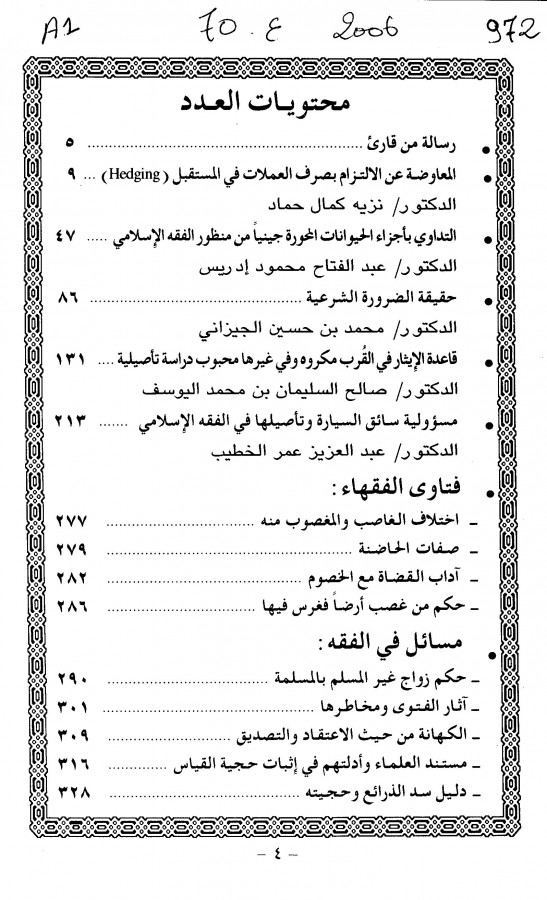 A1 70.ع 2006 972
محتويات العدد
• رسالة من قارئ ........ ٥
• المعاوضة عن الالتزام بصرف العملات في المستقبل (Hedging) ... ٩
الدكتور/ نزيه كمال حماد
• التداوي بأجزاء الحيوانات المحورة جينياً من منظور الفقه الإسلامي ..... ٤٧
الدكتور/ عبد الفتاح محمود إدريس
• حقيقة الضرورة الشرعية ........ ٨٦
الدكتور/ محمد بن حسين الجيزاني
• قاعدة الإيثار في القُرب مكروه وفي غيرها محبوب دراسة تأصيلية .... ١٣١
الدكتور/ صالح السليمان بن محمد اليوسف
• مسؤولية سائق السيارة وتأصيلها في الفقه الإسلامي ....... ٢١٣
الدكتور/ عبد العزيز عمر الخطيب
• فتاوى الفقهاء :
ـ اختلاف الغاصب والمغصوب منه ........ ٢٧٧
ـ صفات الحاضنة ........ ٢٧٩
ـ آداب القضاة مع الخصوم ........ ٢٨٢
ـ حكم من غصب أرضاً فغرس فيها ........ ٢٨٦
• مسائل في الفقه :
ـ حكم زواج غير المسلم بالمسلمة ........ ٢٩٠
ـ آثار الفتوى ومخاطرها ........ ٣٠١
ـ الكهانة من حيث الاعتقاد والتصديق ........ ٣٠٩
ـ مستند العلماء وأدلتهم في إثبات حجية القياس ........ ٣١٦
ـ دليل سد الذرائع وحجيته ........ ٣٢٨
- ٤ -